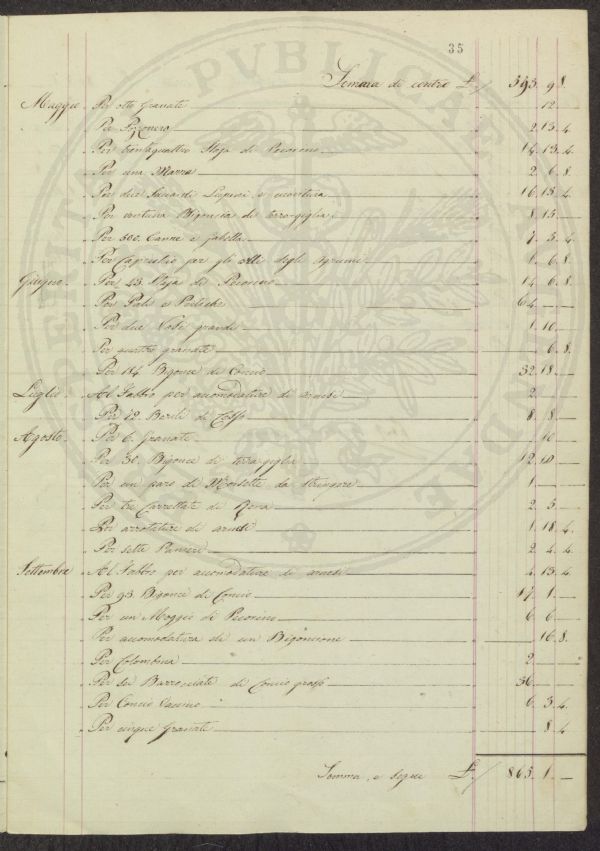 35
Somma di contro £ 593. 98.
Maggio Per otto Granate 12
Per
Per trentaquattro Staja di Pecorino 14. 13. 4
Per una Marra 2. 6. 8.
Per dieci e 16. 13. 4
Per ventuna Bigoncia di terra-giglia 8. 15
Per 300. Canne e gabella 7. 3. 4
Per Capecchio per gli degli Agrumi 1. 6. 8.
Giugno. Per 43. Staja di Pecorino 14 6. 8.
Per Pali e Pertiche 64
Per due Vasi grandi 1. 10
Per quattro granate 6. 8.
Per 114 Bigonce di Concio 32. 18
Luglio. Al Fabbro per accomodature di arnesi 2
Per 12 Barili di 8. 8
Agosto. Per 6. Granate 10
Per 30. Bigonce di terra-giglia 12. 10
Per un paro di Morsette da stringere 1
Per tre Carrettate di Rena 2. 5
Per arrotature di arnesi 1. 18. 4.
Per sette Panieri 2. 4. 4
Settembre Al Fabbro per accomodature di arnesi 4. 13. 4.
Per 93. Bigonce di Concio 17. 1
Per un Moggio di Pecorino 6. 6
Per accomodatura di un Bigoncione 16. 8.
Per Colombina 2
Per sei Barrocciate di Concio grosso 36
Per Concio 6. 3. 4.
Per cinque Granate 8. 4
Somma, e segue £ 865. 1.